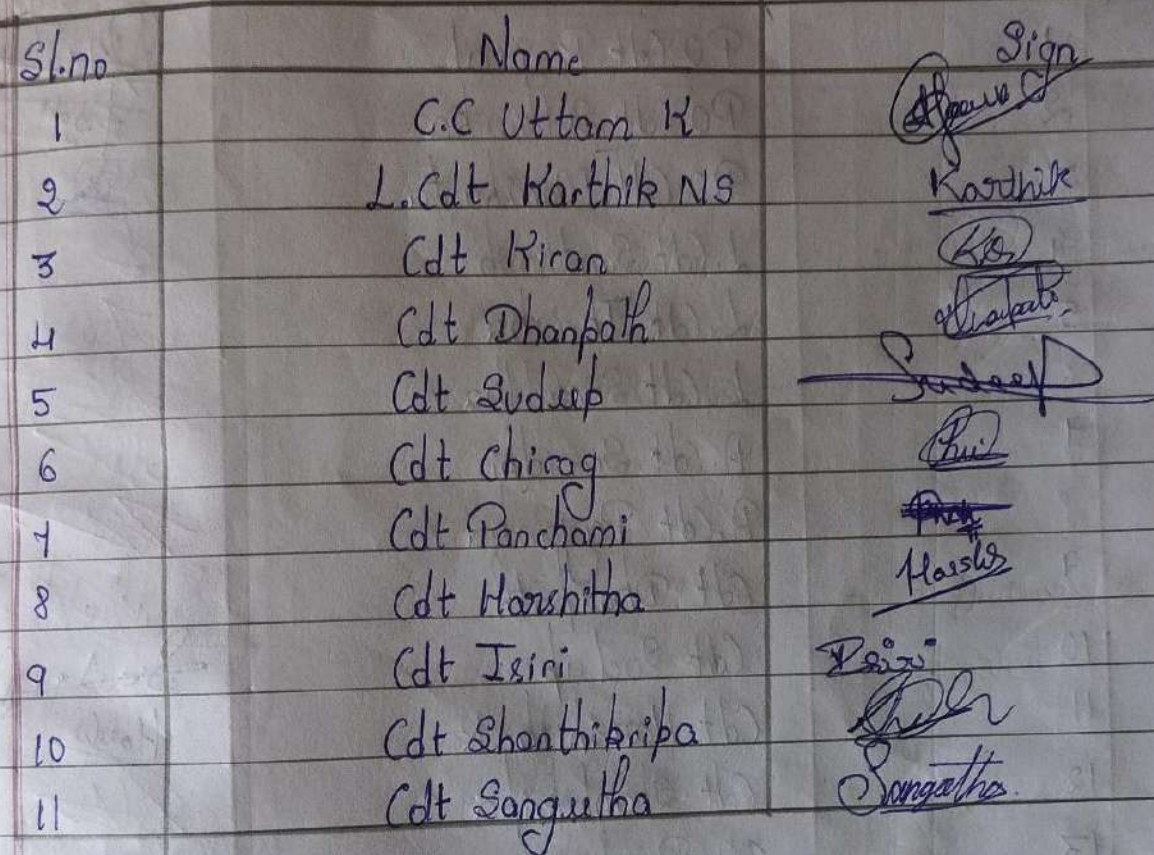 Sl.no Name Sign
1 C.C Uttam K
2 L.Cdt Karthik NS Karthik
3 Cdt Kiran
4 Cdt Dhanpath
5 Cdt Sudeep Sudeep
6 Cdt Chirag
7 Cdt Panchami
8 Cdt Harshitha
9 Cdt Isiri Isiri
10 Cdt Shanthikripa
11 Cdt Sangeetha Sangeetha